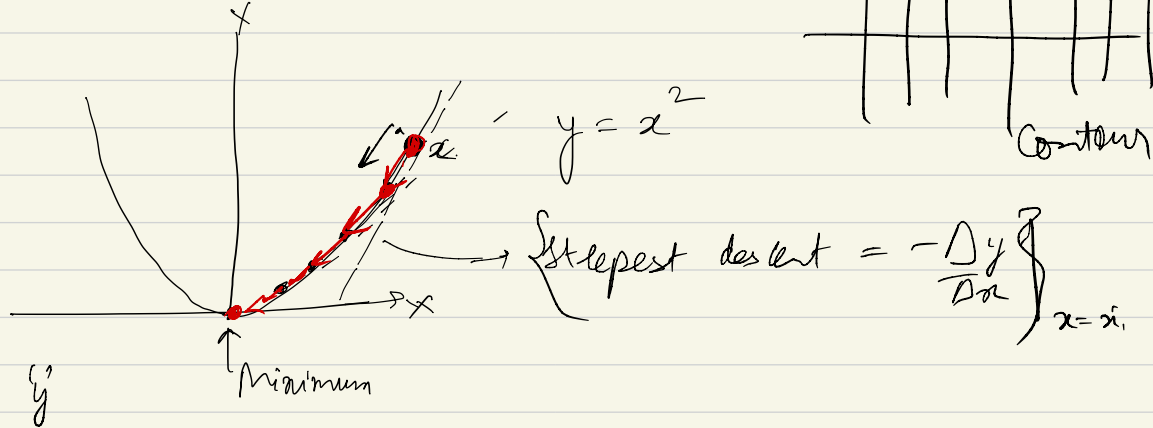 Y
y = x²
Contour
x
{Steepest descent = -Δy/Δx}x=xi
X
Minimum
"y